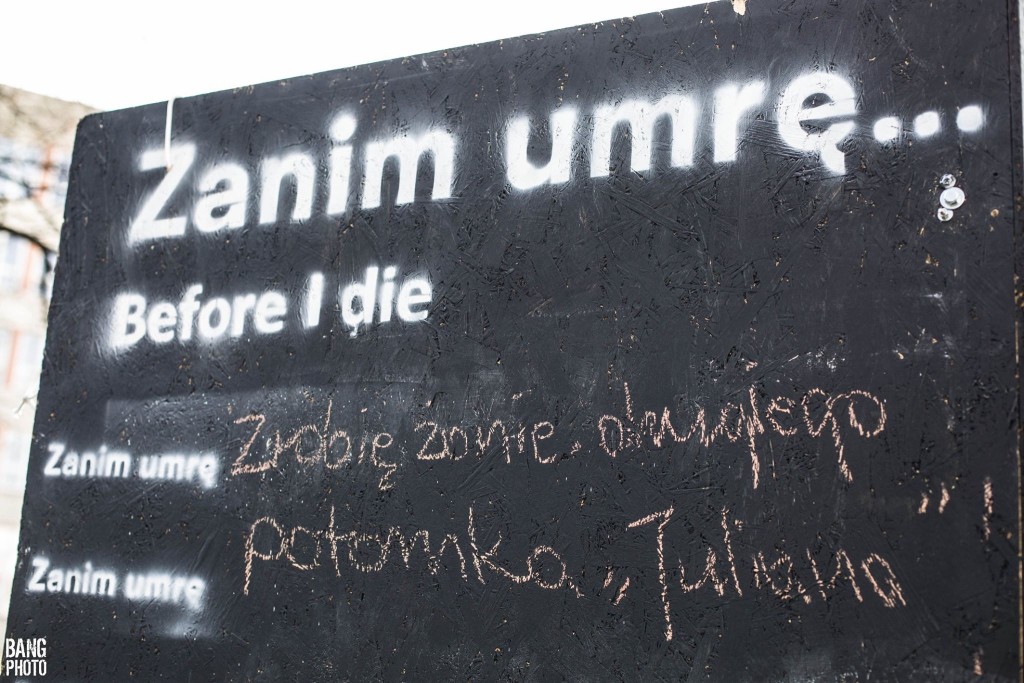 Zanim umrę...
Before I die
Zanim umrę Zrobię żonie
Zanim umrę potomka „Juliana”!
BANG
PHOTO